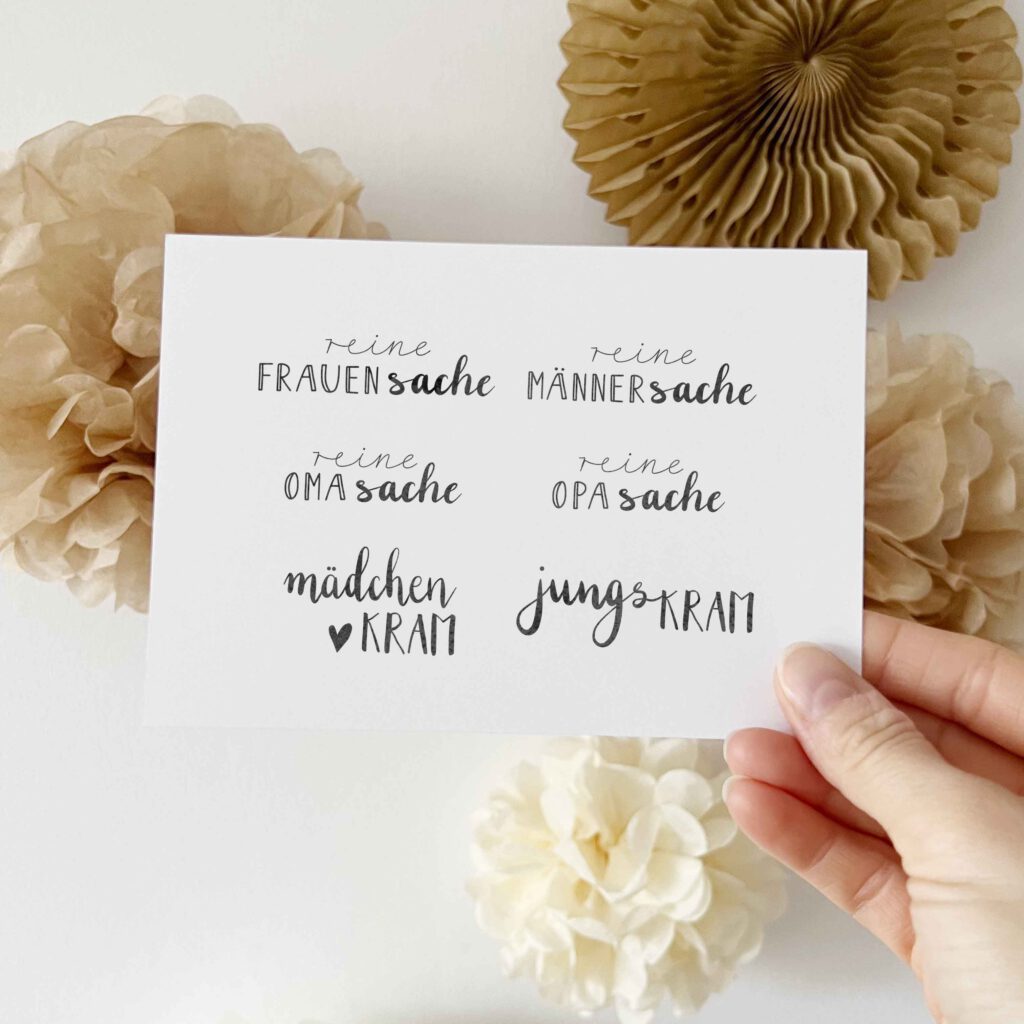 reine
FRAUENsache
reine
MÄNNERsache
reine
OMAsache
reine
OPAsache
mädchen
♥KRAM
jungsKRAM